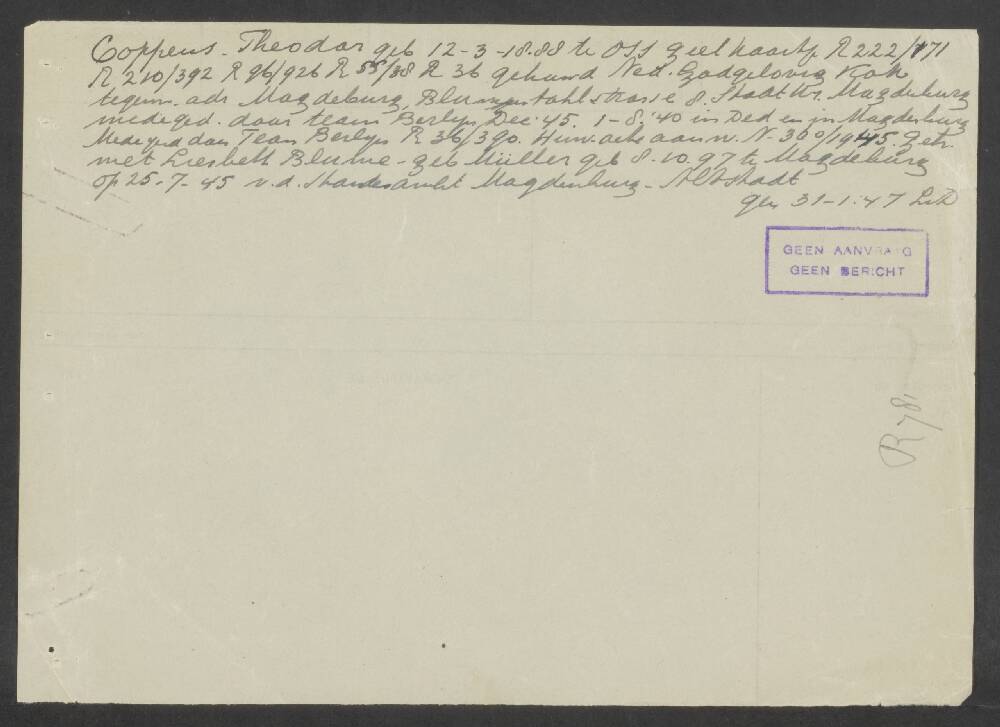 Coppens. Theodor geb 12-3-1888 te Oss geel kaartje R 222/171
R 210/392 R 96/926 R 55/38 R 36 gehuwd Ned. Godgelovig Kok
tegenw. adr Magdeburg, Blumenthalstrasse 8. Stadttr. Magdeburg
medeged. door team Berlijn Dec. 45. 1-8-'40 in Ded en in Magdeburg
Medeged door Team Berlijn R 36/390. Huw. acte aanw. N. 360/1945. Getr.
met Liesbeth Blume - geb Müller geb 8.10.97 te Magdeburg
op 25-7-45 v.d. Standesambt Magdenburg - Altstadt
31-1-47
GEEN AANVRAAG
GEEN BERICHT
R 781